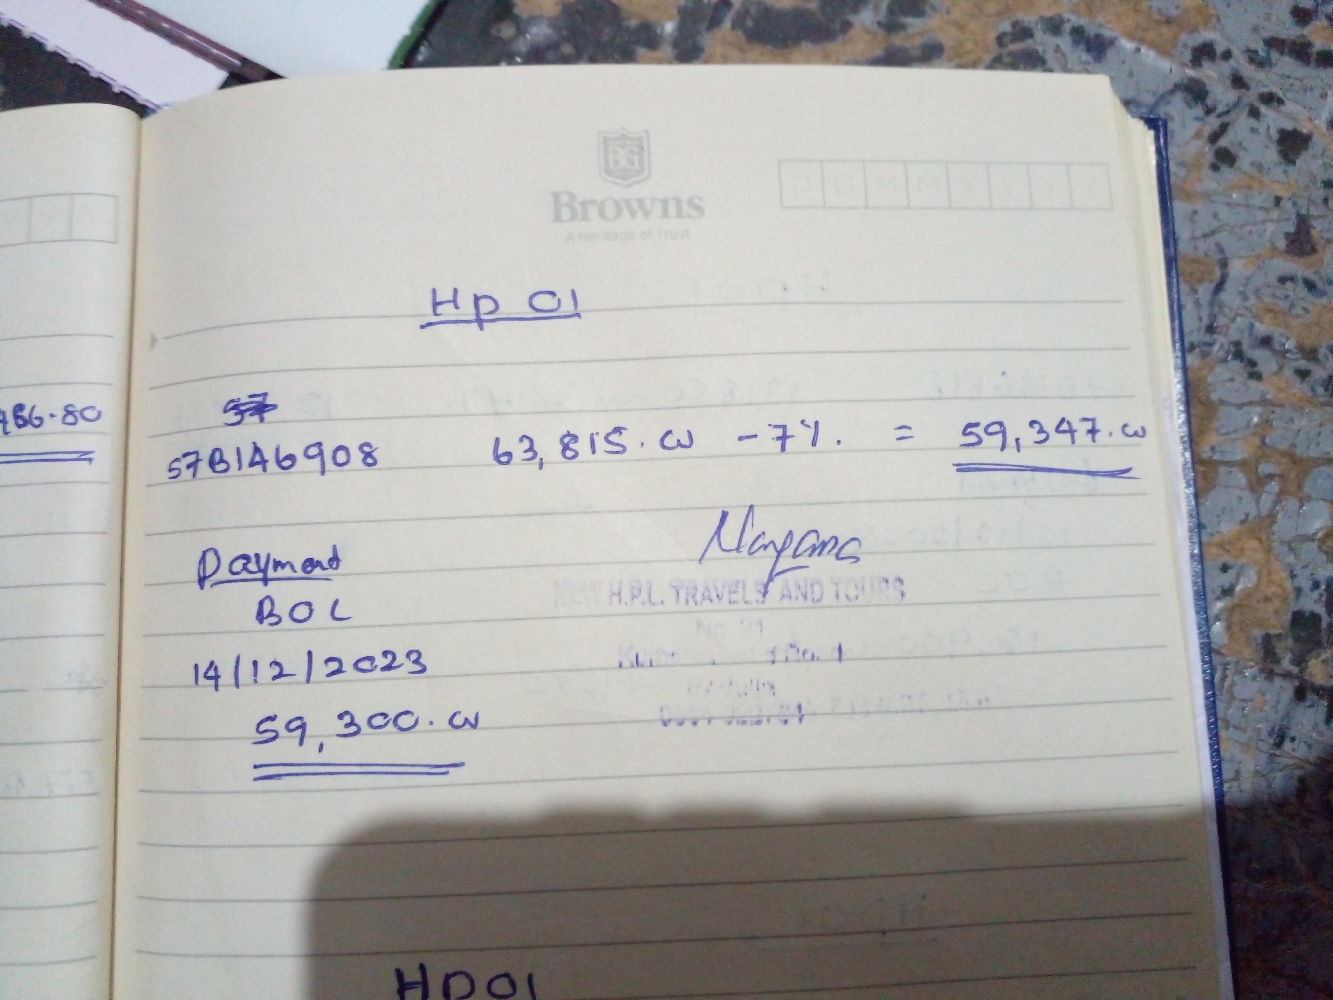 BG
Browns
A Heritage of Trust
Hp 01
486.80
57
57B1A6908 63,815.00 -7%. = 59,347.00
Payment
BOC
14/12/2023
59,300.00
NEW H.P.L. TRAVELS AND TOURS
No. 21
Road
HP01